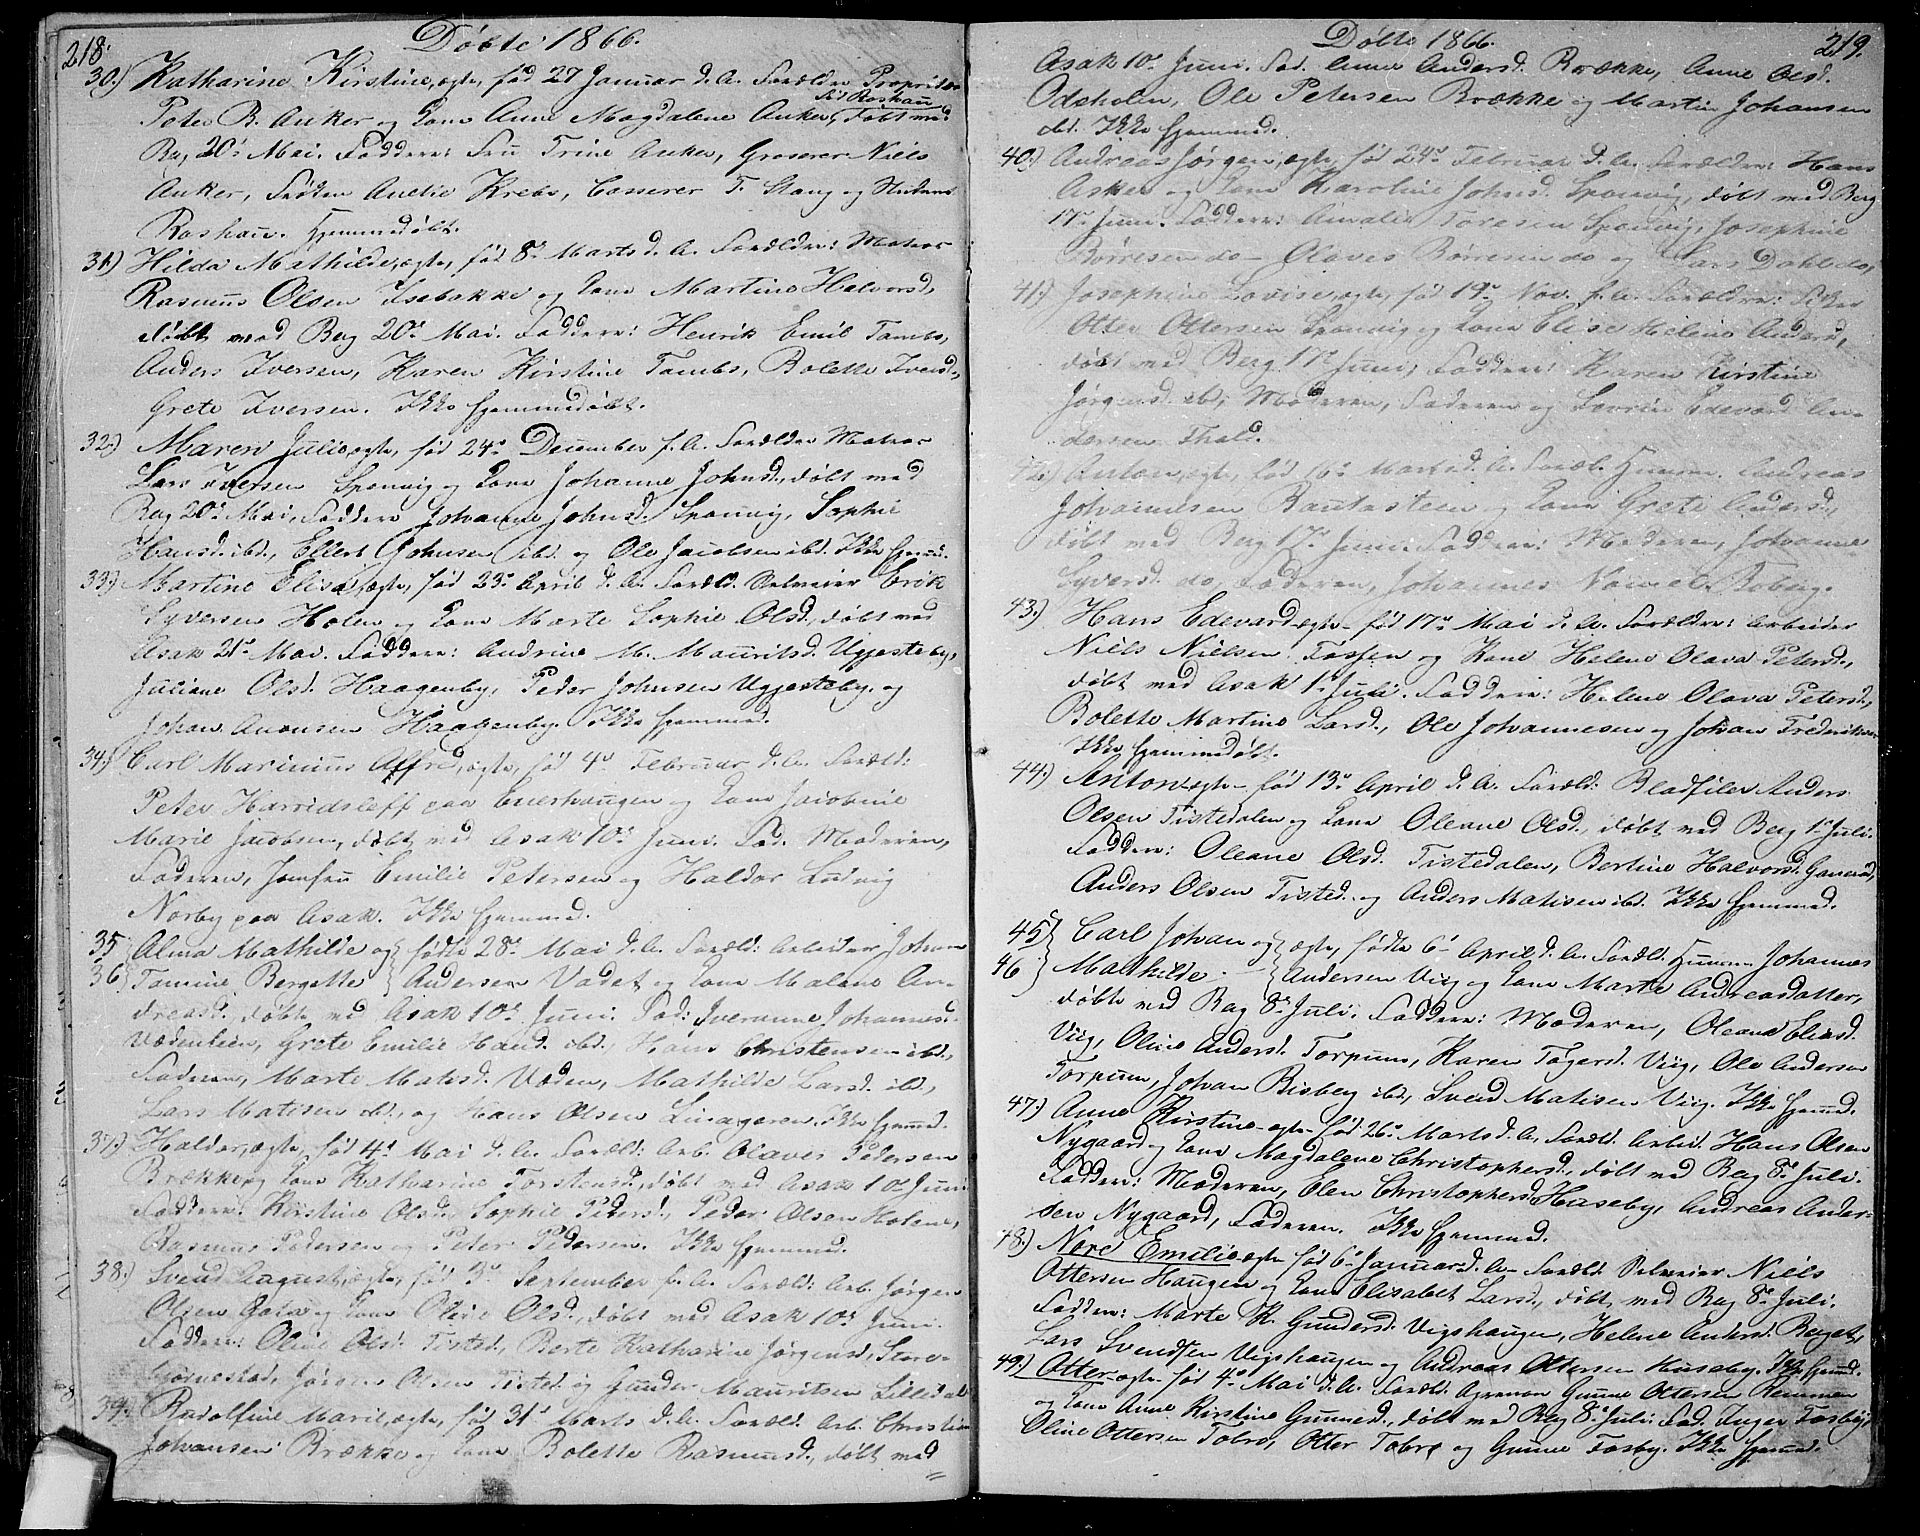 218.
Døbte 1866.
30.) Katharine Kirstine, ægte, fød 27 Januar d. A. Forældre Proprietær
Peter B. Anker og Kone Anne Magdalene Anker, født Roshau døbt med
Berg 20de Mai. Faddere: Fru Trine Anker, Grosserer Niels
Anker, Frøken Anette Krebs, Casserer T. Stang og Student
Roshau. Hjemmedøbt.
31.) Hilda Mathilde, ægte, fød 8de Marts d. A. Forældre: Matros
Rasmus Olsen Isebakke og Kone Martine Halvorsd.,
døbt med Berg 20de Mai. Faddere: Henrik Emil Tambs,
Anders Iversen, Karen Kirstine Tambs, Bolette Svends.,
Grete Iversen. Ikke hjemmedøbt.
32.) Maren Julie, ægte, fød 24de December f. A. Forældre Matros
Lars Iversen Sponvig og Kone Johanne Johnsd., døbt med
Berg 20de Mai, Faddere Johanne Johnsd. Sponvig, Sophie
Hansd. ibd., Ellert Johnsen ibd. og Ole Jacobsen ibd. Ikke hjemmed.
33.) Martine Elise, ægte, fød 23de April d. A. Foræld. Selveier Erik
Syversen Holen og Kone Marte Sophie Olsd., døbt med
Asak 21de Mai. Faddere: Andrine M. Mauritsd. Ugjesteby,
Juliane Olsd. Haagenby, Peder Johnsen Ugjesteby, og
Johan Haagenby. Ikke hjemmed.
34.) Carl Marinius Alfred, ægte, fød 4de Februar d. A. Foræld:
Peter Harridsleff paa Enerhaugen og Kone Jacobine
Marie Jacobsen, døbt med Asak 10de Juni. Fad. Moderen,
Faderen, Jomfru Emilie Petersen og Haldor Ludvig
Norby paa Asak. Ikke hjemmed.
35 Alma Mathilde og } fødte 28de Mai d. A. Foræld: Arbeider Johan
36 Tomine Bergette } Andersen Vadet og Kone Malene An-
dreasd. døbte med Asak 10de Juni. Fad: Iveranne Johannesd.
Vædenteien, Grete Emilie Hansd. ibd., Hans Christensen ibd.,
Faderen, Marte Matisd. Væden, Mathilde Larsd. ibd.,
Lars Matisen ibd., og Hans Olsen. Ikke hjemmed.
37.) Haldor, ægte, fød 4de Mai d. A. Foræld: Arb. Olaves Pedersen
Brække og Kone Katharine Torstensd., døbt med Asak 10de Juni.
Faddere: Kirstine Olsd., Sophie Pedersd., Peder Olsen Holene,
Rasmus Pedersen og Peter Pedersen. Ikke hjemmed.
38.) Svend August, ægte, fød 3de September f. A. Foræld: Arb. Jørgen
Olsen og Kone Oleie Olsd., døbt med Asak 10de Juni.
Faddere: Oline Olsd. Tisted., Berte Katharine Jørgensd. Store-
bjørnestad, Jørgen Olsen Tisted. og Gunder Mauritsen Lilledal.
39. Rudolfine Marie, ægte, fød 31te Marts d. A. Foræld. Arb. Christian
Johansen Brække og Kone Bolette Rasmusd., døbt med
Døbte 1866.
219.
Asak 10de Juni. Fad. Anne Andersd. Brække, Anne Olsd.
Odeholen, Ole Petersen Brække og Martin Johansen
ibd. Ikke hjemmed.
40.) Andreas Jørgen, ægte, fød 24de Februar d. A. Forældre: Hans
Asker og Kone Karoline Johnsd. Sponvig, døbt med Berg
17de Juni. Faddere: Amalie Toresen Sponvig, Josephine
Børresen do – Olaves Børresen do og Lars Dahl do,
41.) Josephine Lovise, ægte, fød 19de Nov. f. A. Forældre: Fisker
Otter Ottersen Sponvig og Kone Elise Helene Andersd.,
døbt med Berg 17de Juni, Faddere: Karen Kirstine
Jørgensd. ibd., Moderen, Faderen og Edevard An-
dersen Thold.
42.) Anton, ægte, fød 16de Marts d. A. Foræl. Husm. Andreas
Johannesen Bautasteen og Kone Grete Andersd.,
døbt med Berg 17de Juni. Faddere: Moderen, Johanne
Syversd. do, Faderen, Johannes
43.) Hans Edevard – ægte – fød 17de Mai d. A. Forældre: Arbeider
Niels Nielsen Fossen og Kone Helene Olava Petersd.,
døbt med Asak 1te Juli. Faddere: Helene Olava Petersd.,
Bolette Martine Larsd., Ole Johannesen og Johan Frederiksen
Ikke hjemmedøbt.
44.) Anton – ægte – fød 13de April d. A. Foræld: Bladfiler Anders
Olsen Tistedalen og Kone Oleane Olsd., døbt med Berg 1te Juli.
Faddere: Oleane Olsd. Tistedalen, Bertine Halvorsd.
Anders Olsen Tisted. og Anders Matisen ibd. Ikke hjemmed.
45 } Carl Johan og } ægte, fødte 6te April d. A. Foræld. Husm. Johannes
46 } Mathilde } Andersen Viig og Kone Marte Andreasdatter,
døbte med Berg 8de Juli. Faddere: Moderen, Oleana Eliasd.
Viig, Oline Andersd. Torpum, Karen Togersd. Viig, Ole Andersen
Torpum, Johan Bisberg ibd., Svend Matisen Viig. Ikke hjemmd.
47.) Anne Kirstine – ægte – fød 26de Marts d. A. Foræld. Arbeid. Hans Olsen
Nygaard og Kone Magdalene Christophersd., døbt med Berg 8de Juli.
Faddere: Moderen, Olea Christophersd. Huseby, Andreas Ander-
sen Nygaard, Faderen. Ikke hjemmed.
48.) Nore Emilie – ægte – fød 6te Januar d. A. – Foræld. Selveier Niels
Ottersen Haugen og Kone Elisabet Larsd., døbt med Berg 8de Juli.
Faddere: Marte K. Gundersd. Vigshaugen, Helene Andersd. Berget,
Lars Svendsen Vigshaugen og Andreas Ottersen Huseby. Ikke hjemd.
49.) Otter – ægte – fød 4de Mai d. A. Foræld. Gunne Ottersen Remmen
og Kone Anne Kirstine Gunnesd., døbt med Berg 8de Juli. Fad. Inger Fosby,
Oline Ottersen Tobro, Otter Tobro og Gunne Fosby. Ikke hjemmed.